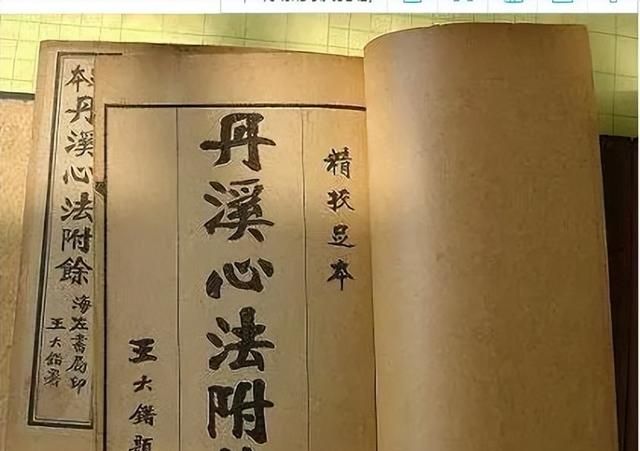 精挍足本
丹溪心法附
王大錯題
本丹溪心法附餘
海左書局印
王大錯署